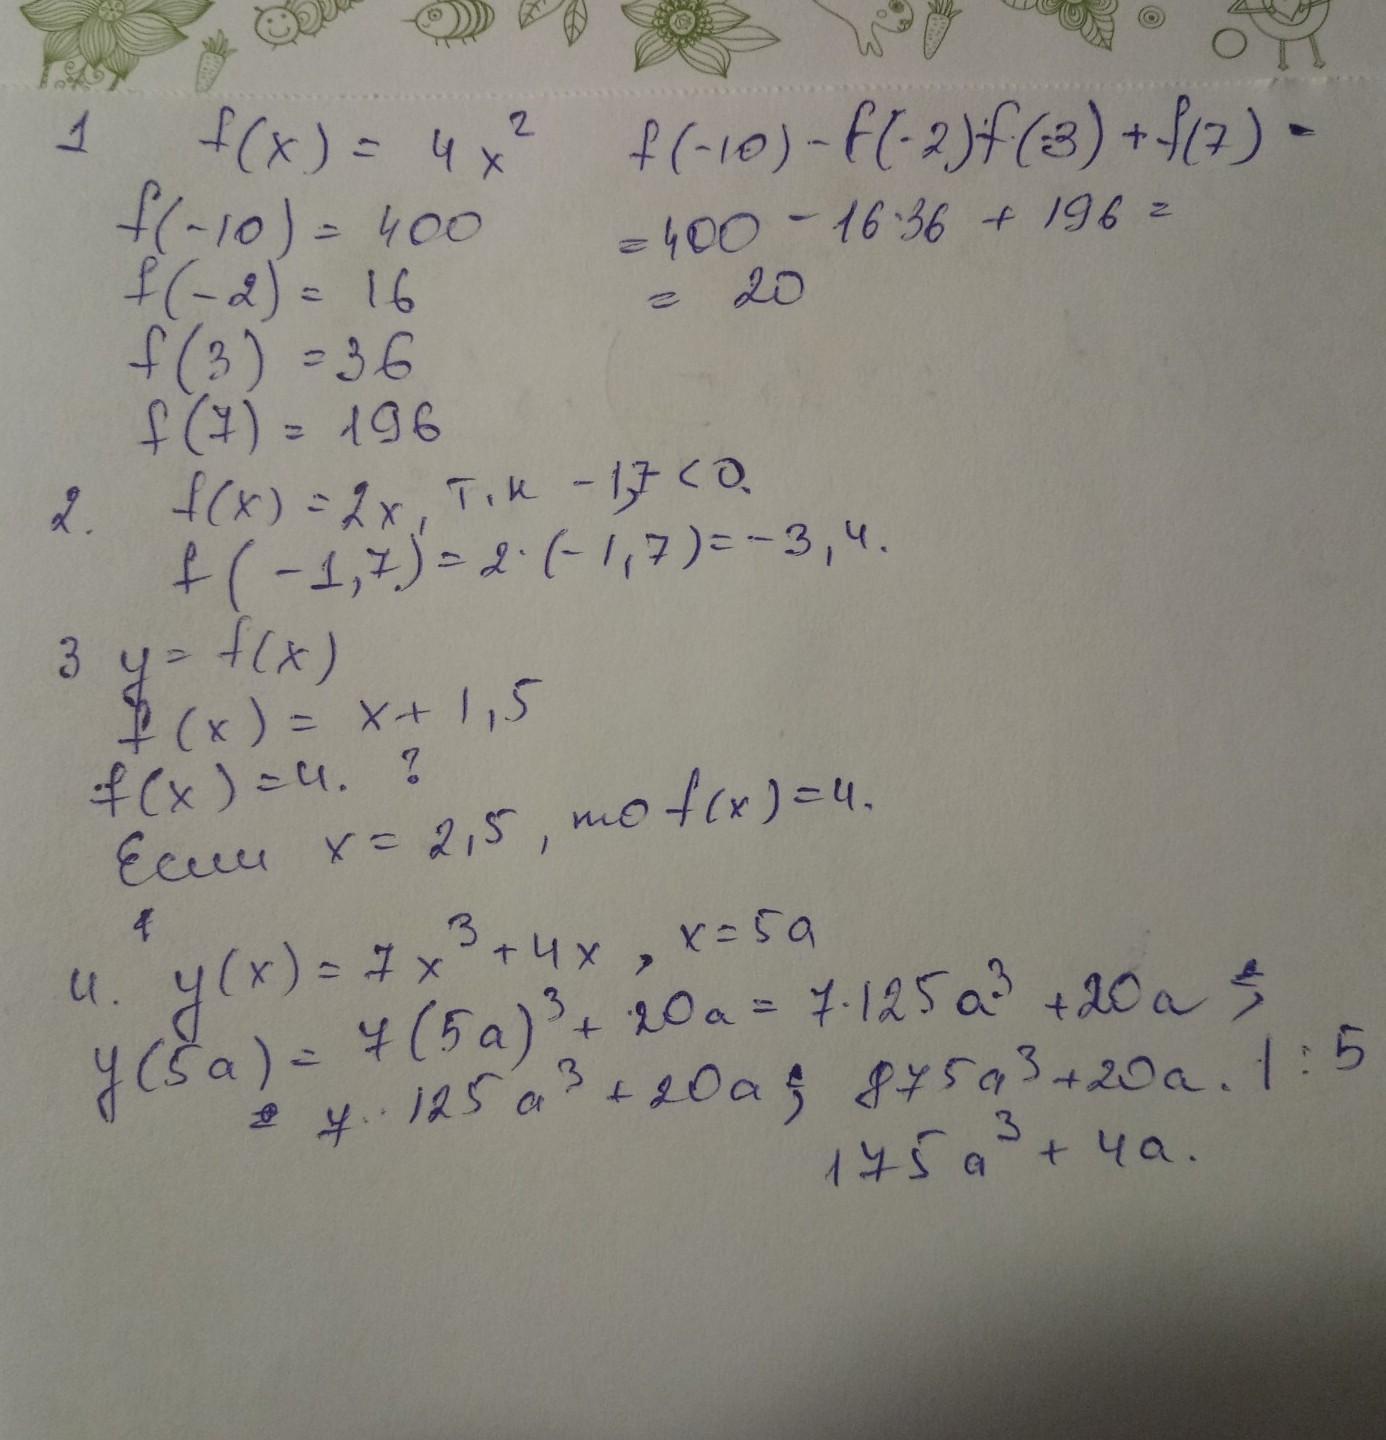 1 f(x) = 4x² f(-10) - f(-2)f(3) + f(7) -
f(-10) = 400 = 400 - 16·36 + 196 =
f(-2) = 16 = 20
f(3) = 36
f(7) = 196
2. f(x) = 2x, т.к -1,7 < 0.
f(-1,7) = 2·(-1,7) = -3,4.
3 y = f(x)
f(x) = x + 1,5
f(x) = 4. ?
Если x = 2,5, то f(x) = 4.
4. y(x) = 7x³ + 4x, x = 5a
y(5a) = 7(5a)³ + 20a = 7·125a³ + 20a ;
= 7·125a³ + 20a ; 875a³ + 20a. | : 5
175a³ + 4a.